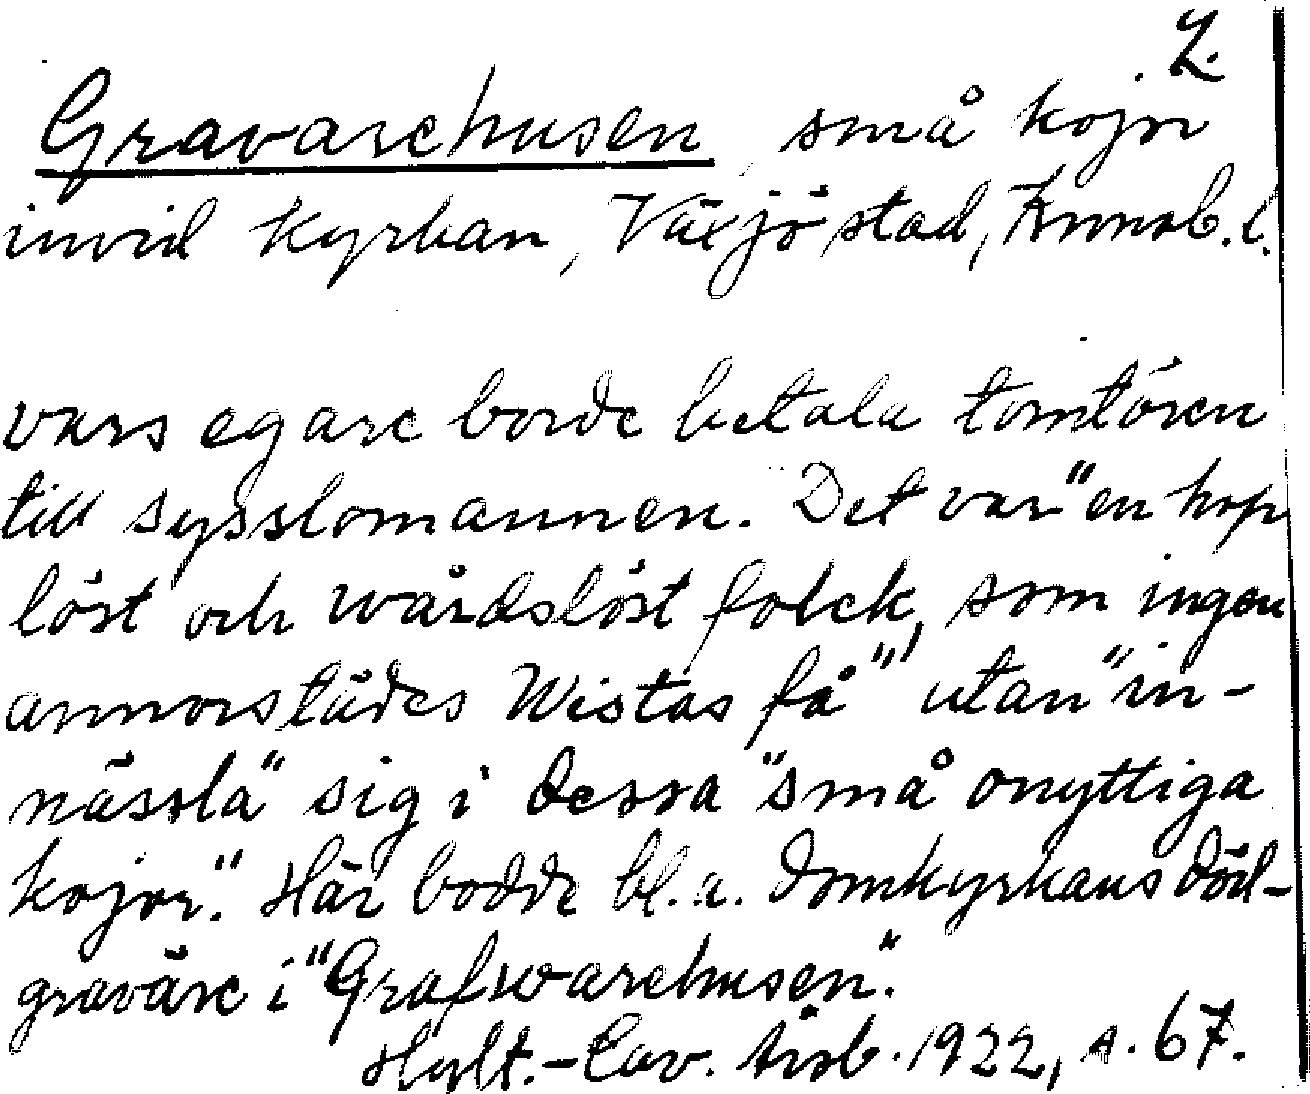 2.
Gravarehusen, små kojor
invid kyrkan, Växjö stad, Kronob. l.
vars egare borde betala tomtören
till sysslomannen. Det var "en hop
löst och wårdslöst folck, som ingen
annorstådes Wistas få", utan "in-
nässla" sig i dessa "små onyttiga
kojor." Här bodde bl.a. domkyrkans död-
gravare i "Grafwarehusen".
Hylt.-Cav. årsb. 1922, s. 67.